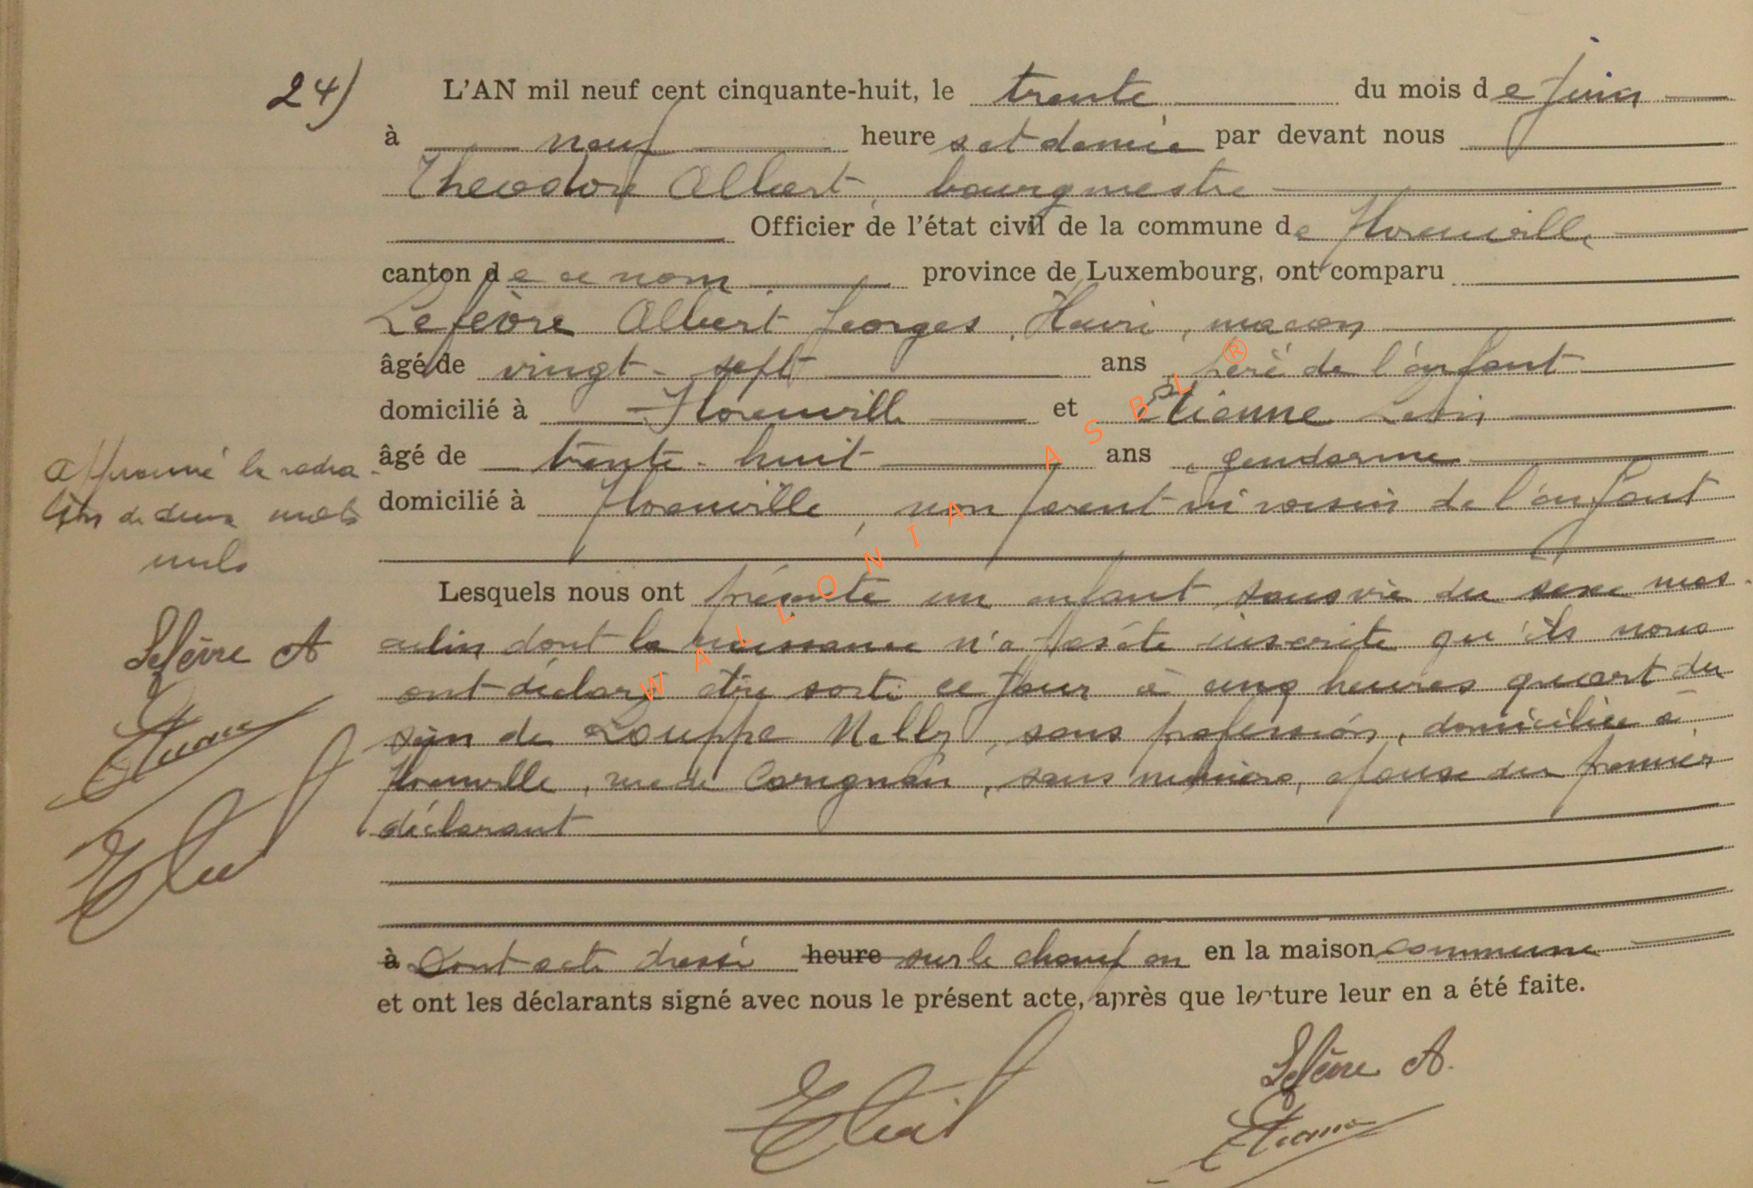 24)
L'AN mil neuf cent cinquante-huit, le trente du mois de Juin
à neuf heures et demie par devant nous
Théodore Albert, bourgmestre
Officier de l'état civil de la commune de Florenville
canton de ce nom province de Luxembourg, ont comparu
Lefèvre Albert Georges Henri, maçon
âgé de vingt-sept ans père de l'enfant
domicilié à Florenville et Etienne
âgé de trente-huit ans, gendarme
domicilié à Florenville, non parent ni voisin de l'enfant
Approuvé la radia-
tion de deux mots
nuls
Lesquels nous ont présenté un enfant sans vie du sexe mas-
culin dont la naissance n'a pas été inscrite qu'ils nous
ont déclaré être sorti ce jour à cinq heures quart du
sein de Louppe Nelly, sans profession, domiciliée à
Florenville, rue de Carignan, sans, épouse du premier
déclarant
Lefèvre A
Etienne
à Dont acte dressé heure sur le champ en en la maison commune
et ont les déclarants signé avec nous le présent acte, après que lecture leur en a été faite.
Lefèvre A.
Etienne
WALLONIA ASBL ®